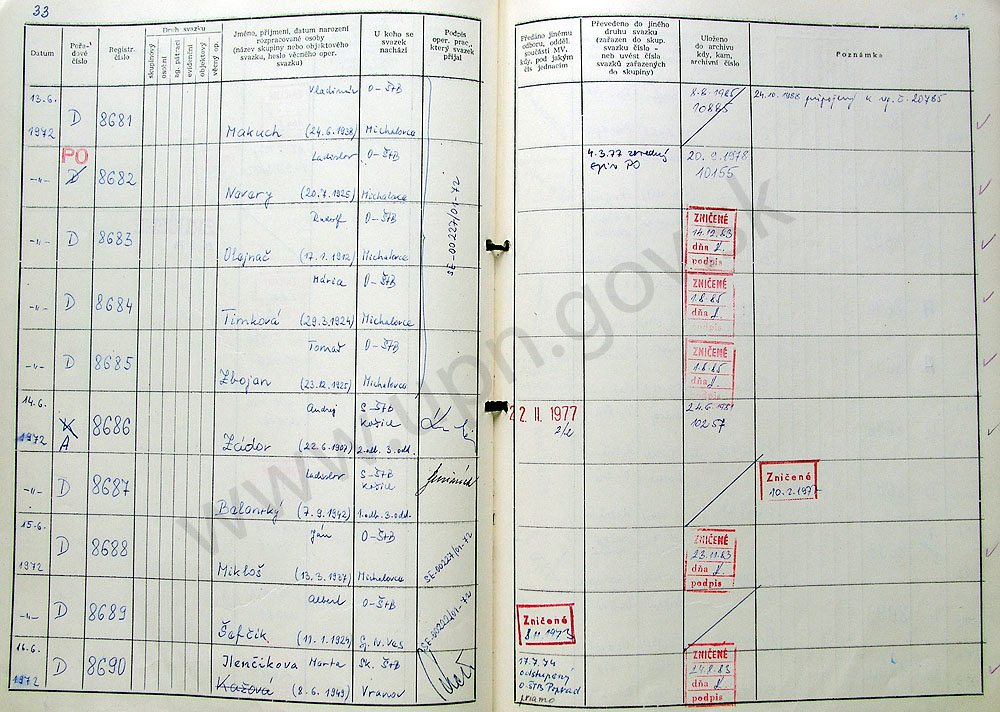 33
Datum
Pořa-
dové
číslo
Registr.
číslo
Druh svazku
skupinový
osobní
sg. pátrací
evidenční
objektový
věcný op.
Jméno, příjmení, datum narození
rozpracované osoby
(název skupiny nebo objektového
svazku, heslo věcného oper.
svazku)
U koho se
svazek
nachází
Podpis
oper. prac.,
který svazek
přijal
Předáno jinému
odboru, odděl.
součásti MV,
kdy, pod jakým
čís jednacím
Převedeno do jiného
druhu svazku
(zařazen do skup.
svazku číslo -
neb uvést čísla
svazků zařazených
do skupiny)
Uloženo
do archivu
kdy, kam,
archivní číslo
Poznámka
13.6.
1972
D
8681
Vladimír
Makuch (24.6.1938)
O-ŠtB
Michalovce
8.8.1985
10885
24.10.1988 pripojený k
PO
-"-
D
8682
Ladislav
Novary (20.7.1925)
O-ŠtB
Michalovce
4.3.77
PO
20.9.1978
10155
-"-
D
8683
Rudolf
Olejnač (17.1.1912)
O-ŠtB
Michalovce
SE-00227/01-72
ZNIČENÉ
14.12.83
dňa
podpis
-"-
D
8684
Mária
Timková (29.3.1924)
O-ŠtB
Michalovce
ZNIČENÉ
1.8.85
dňa
podpis
-"-
D
8685
Tomáš
Zbojan (23.12.1925)
O-ŠtB
Michalovce
ZNIČENÉ
1.8.85
dňa
podpis
14.6.
1972
A
8686
Andrej
Zádor (22.6.1907)
S-ŠtB
Košice
2.odb. 3.odd.
22.II.1977
10257
-"-
D
8687
Ladislav
(7.9.1942)
S-ŠtB
Košice
1.odb. 3.odd.
Zničené
10.2.1977
15.6.
1972
D
8688
Ján
Mikloš (13.3.1937)
O-ŠtB
Michalovce
SE-00227/01-72
ZNIČENÉ
23.11.83
dňa
podpis
-"-
D
8689
Albert
Šefčík (19.1.1924)
O-ŠtB
Sp. N. Ves
SE-00202/01-72
Zničené
8.11.1973
16.6.
1972
D
8690
Ilenčíkova Marta
Kažová (8.6.1949)
Sk. ŠtB
Vranov
17.7.74
odstúpený
O-ŠtB Poprad
priamo
ZNIČENÉ
24.8.83
dňa
podpis
www.upn.gov.sk